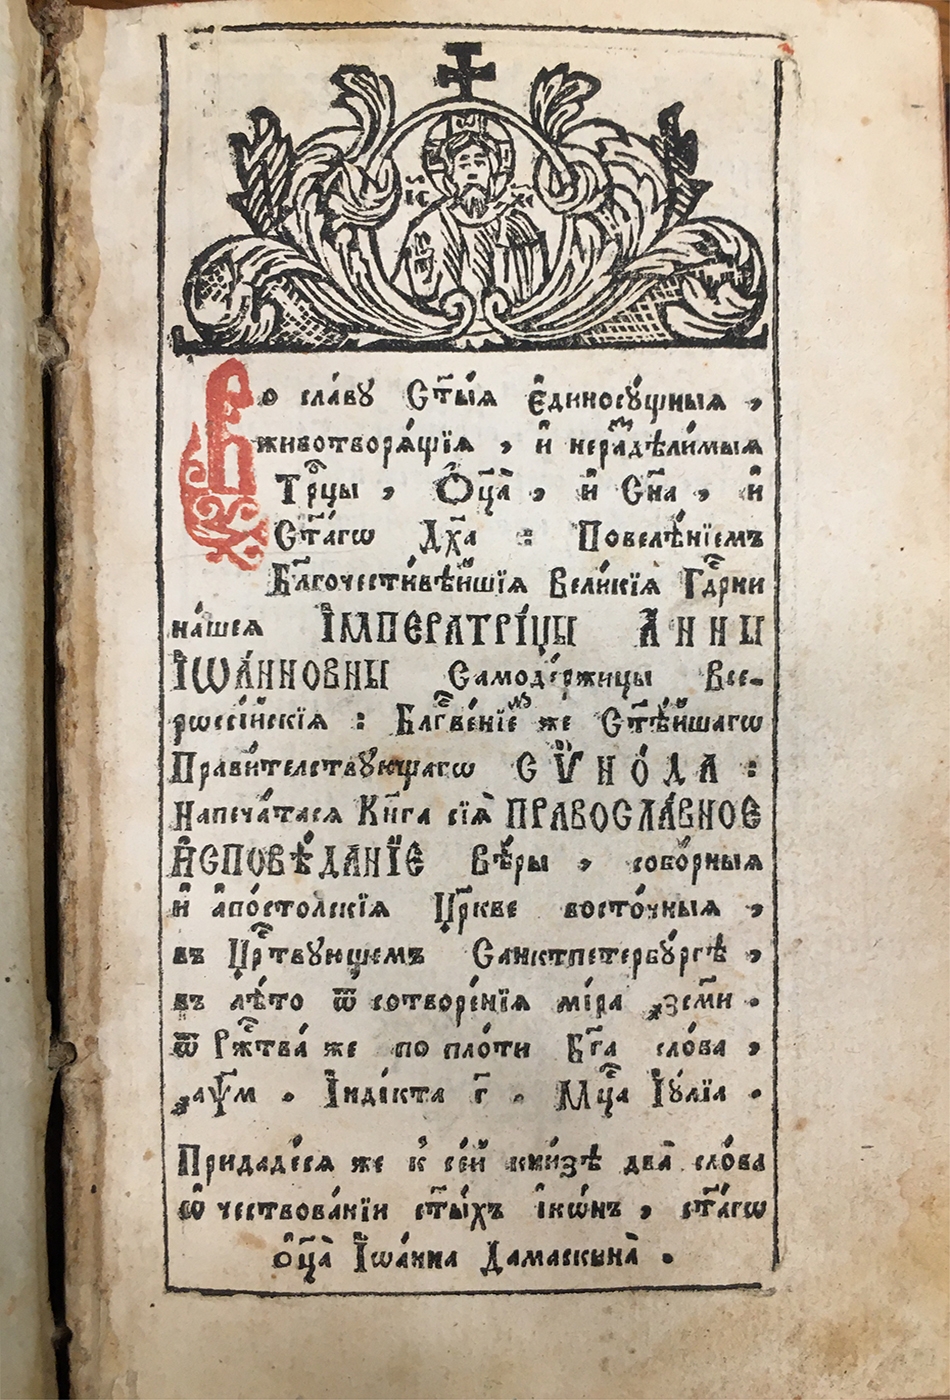 І҃С Х҃С
Во сла́ву Ст҃ы́ѧ Є҆диносꙋ́щныѧ ,
животворѧ́щїѧ , и҆ нераⷥ҇дѣли́мыѧ
Трⷪ҇цы , Ѻ҆ц҃а̀ , и҆ Сн҃а , и҆
Ст҃а́гѡ Дх҃а : Повелѣ́нїемъ
Бл҃гочести́вѣйшїѧ Вели́кїѧ Гдⷭ҇рни
на́шеѧ І҆МПЕРАТРІ́ЦЫ А҆ННЫ
І҆Ѡа́ННОВНЫ Самоде́ржицы Все-
рѡссі́йскїѧ : Блгⷭ҇ве́нїеⷨ же Ст҃ѣ́йшагѡ
Прави́телствꙋющагѡ СѴ҆НО́ДА :
Напеча́тасѧ Кни́га сїѧ̀ ПРАВОСЛА́ВНОЕ
И҆СПОВѢ́ДАНЇЕ Вѣ́ры , собо́рныѧ
и҆ а҆по́столскїѧ Цр҃кве восто́чныѧ ,
въ Црⷭ҇твꙋющемъ Санктпетербꙋ́ргѣ ,
въ лѣ́то ѿ сотворе́нїѧ мі́ра ҂зсм҃и .
ѿ Ржⷭ҇тва́ же по пло́ти Бг҃а сло́ва ,
҂аѱ҃м . І҆нді́кта г҃ . Мцⷭ҇а І҆ꙋ́лїа .
Придаде́сѧ же к̾ се́й кни́зѣ два̀ сло́ва
ѡ҆ че́ствова́нїи ст҃ы́хъ і҆кѡ́нъ , ст҃а́гѡ
ѻ҆ц҃а̀ І҆ѡа́нна Дамаскына̀ .